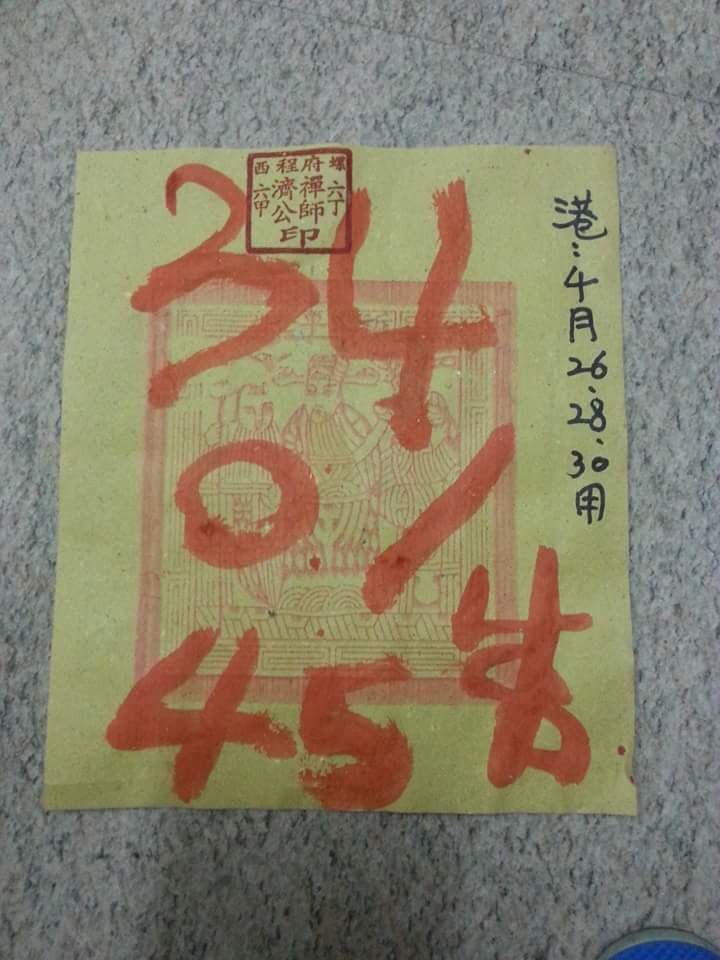 螺府程西
六丁
禪師
濟公
六甲
印
34
01
45
港：4月26.28.30用